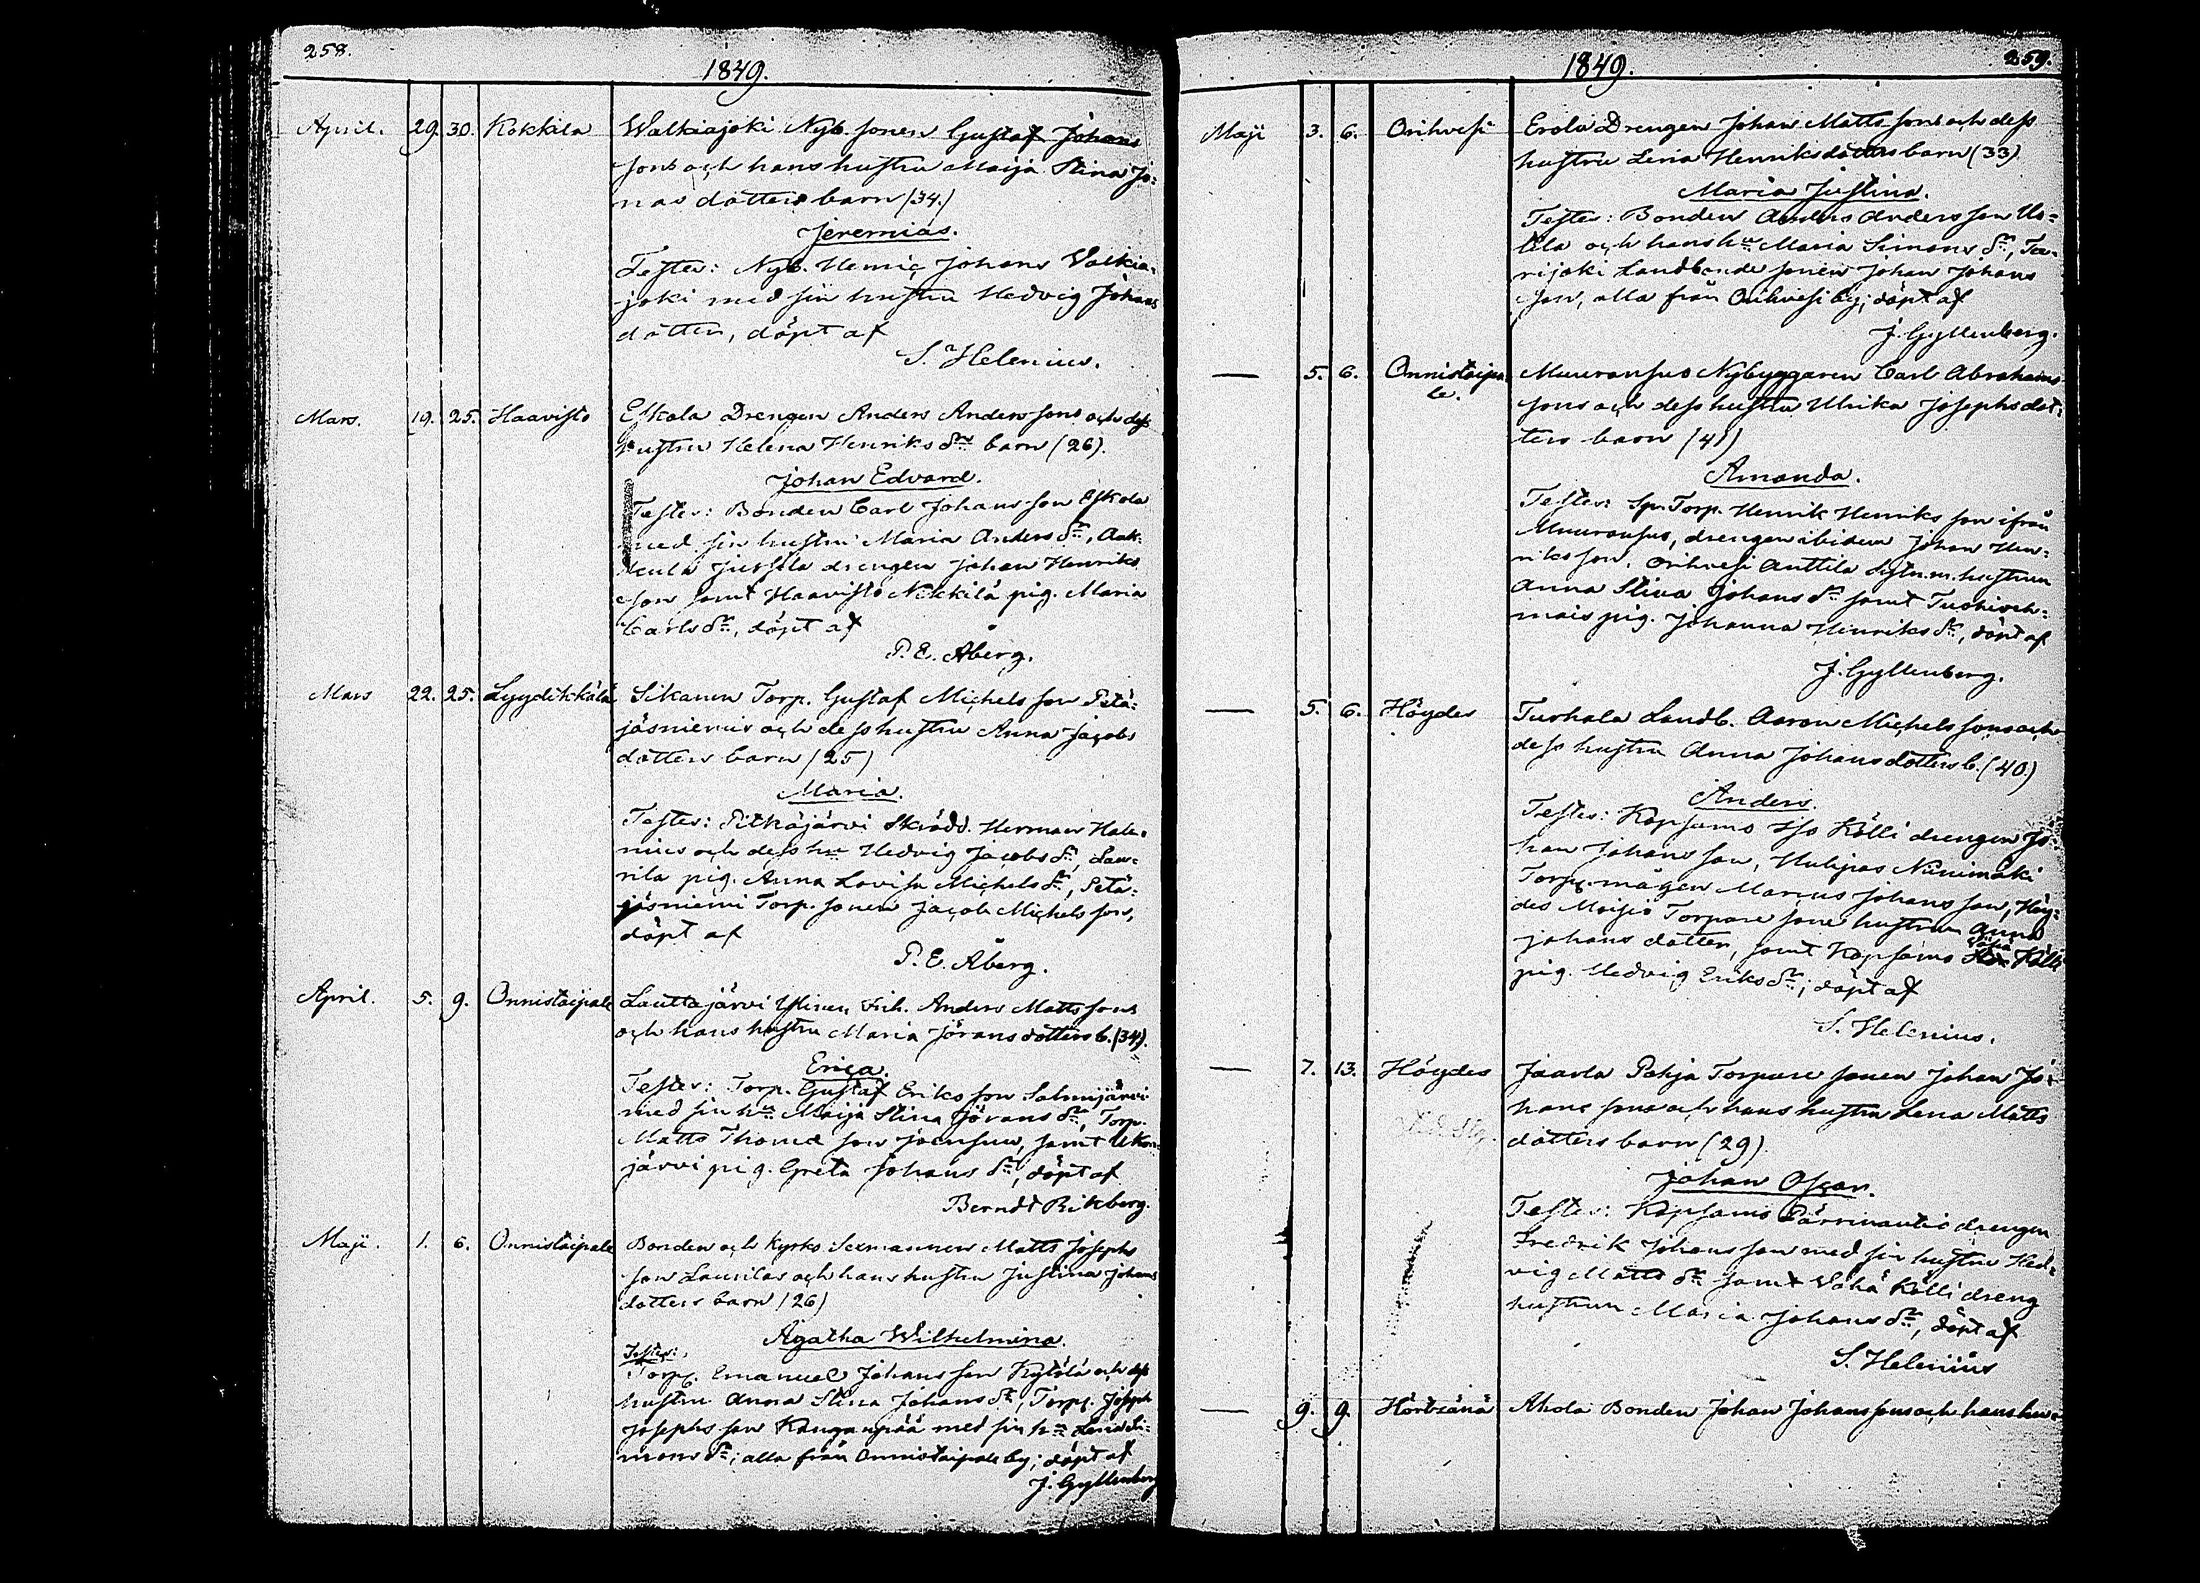 258.
1849.
April. 29. 30. Kokkila Walkiajoki Nyb. sonen Gustaf Johans
sons och hans hustru Maija Stina Jo=
nas dotters barn (34.)
Jeremias.
Testes: Nyb. Hemic Johans Valkia=
joki med sin hustru Hedvig Johans
dotter, döpt af
S. Helenius.
Mars. 19. 25. Haavisto Eskola Drengen Anders Anders sons och dess
hustru Helena Henriks drs barn (26).
Johan Edvard.
Testes: Bonden Carl Johans son Eskola
med sin hustru Maria Anders dr,
Jussila drengen Johan Henriks
son samt Haavisto Nikkilä pig. Maria
Carls dr, döpt af
P. E. Åberg.
Mars 22. 25. Lyydikkälä Sikanen Torp. Gustaf Michels son Petä=
jäsniemis och dess hustru Anna Jacobs
dotters barn (25)
Maria.
Testes: Pitkäjärvi Skrädd. Herman Hele=
nius och dess hu Hedvig Jacobs dr, Lau=
rila pig. Anna Lovisa Michels dr, Petä=
jäsniemi Torp. sonen Jacob Michels son,
döpt af
P. E. Åberg.
April. 5. 9. Onnistaipale Lauttajärvi Anders Matts sons
och hans hustru Maria Jörans dotters b. (34).
Erica.
Testes: Torp. Gustaf Eriks son Salmijärvi
med sin hu Maija Stina Jörans dr, Torp.
Matts Thomæ son Joensuu, samt Ukon=
järvi pig. Greta Johans dr, döpt af
Berndt Rikberg.
Maji. 1. 6. Onnistaipale Bonden och Kyrko Sexmannen Matts Josephs
son Laurilas och hans hustru Justina Johans
dotters barn (26)
Agatha Wilhelmina.
Testes:
Torp. Emanuel Johans son Kytölä och dess
hustru Anna Stina Johans dr, Torp. Joseph
Josephs son Kanganpää med sin hu Lena Si=
mons dr; alla från Onnistaipale by; döpt af
J. Gyllenberg
259.
1849.
Maji 3. 6. Orihvesi Erola Drengen Johan Matts sons och dess
hustru Lena Henriksdotters barn (33)
Maria Justina.
Testes: Bonden Anders Anders son Uo=
tila och hans hu Maria Simons dr, Too=
rijoki Landbonde sonen Johan Johans
son, alla från Orihvesi by; döpt af
J. Gyllenberg.
— 5. 6. Onnistaipa=
le. Muuronsuo Nybyggaren Carl Abrahams
sons och dess hustru Ulrika Josephs dot=
ters barn (41)
Amanda.
Testes: Torp. Henrik Henriks son ifrån
Muuronsuo, drengen ibidem Johan Hen=
riks son, Orihvesi Anttila hustrun
Anna Stina Johans dr samt
pig. Johanna Henriks dr, döpt af
J. Gyllenberg.
— 5. 6. Höydes Turhala Landb. Aaron Michels sons och
dess hustru Anna Johans dotters b. (40.)
Anders.
Testes: Köpsamo Iso Kölli drengen Jo=
han Johans son, Huhjas Niinimäki
Torp. mågen Marcus Johans son, Höy=
des Moisio Torpare sone hustrun Anna
Johans dotter, samt Köpsamo Vähä Kölli
pig. Hedvig Eriks dr; döpt af
S. Helenius.
— 7. 13. Höydes Jaarla Pohja Torpare sonen Johan Jo=
hans sons och hans hustru Lena Matts
dotters barn (29)
Johan Oscar.
Testes: Köpsamo drengen
Fredrik Johans son med sin hustru Hed=
vig Matts dr samt Vähä Kölli dreng
hustrun Maria Johans dr, döpt af
S. Helenius
— 9. 9. Hörtsänä Ahola Bonden Johan Johans sons och hans hu=